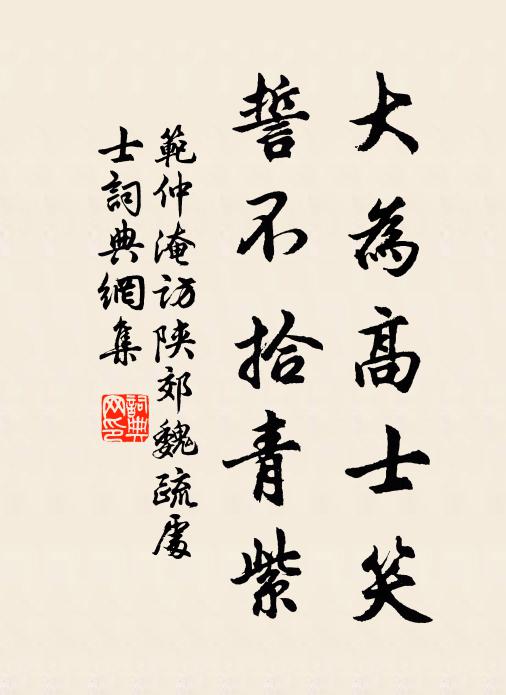 大為高士笑
誓不拾青紫
範仲淹訪陝郊魏疏處
士詞典網集
詞典
网印